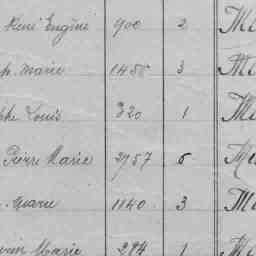 René Eugène 900 2 M
ph. Marie 1450 3 M
phe Louis 320 1 M
Pierre Marie 2757 5 M
Marie 1140 3 M
Marie 294 1 M